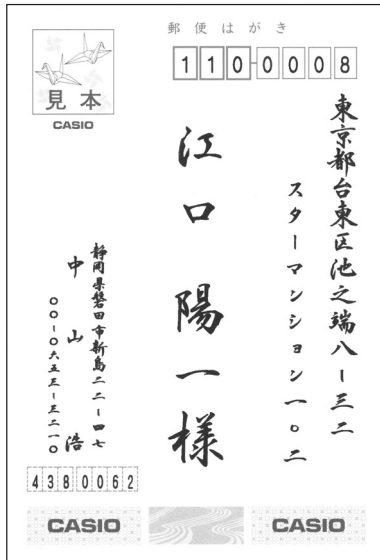 郵便はがき
見本
CASIO
110-0008
東京都台東区池之端八ー三二
スターマンション一〇二
江口陽一様
静岡県磐田市新島二二ー四七
中山浩
〇〇ー〇六五三ー三二一〇
4380062
CASIO
CASIO